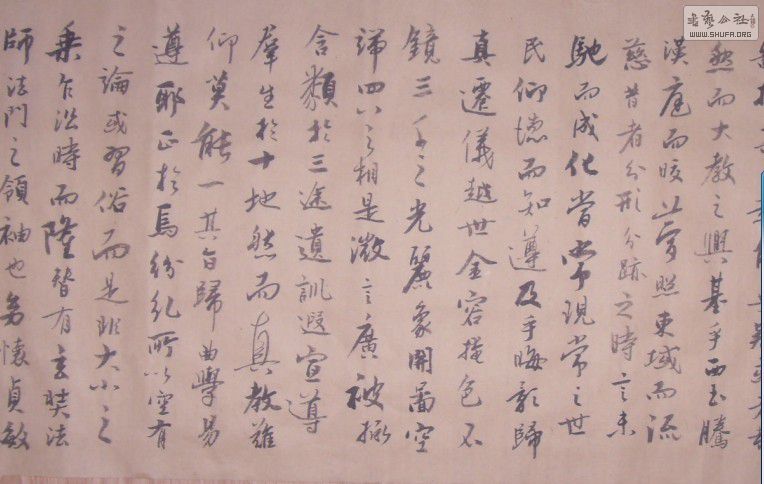 書藝公社
WWW.SHUFA.ORG
然而大教之興基乎西土騰
漢庭而皎夢照東域而流
慈昔者分形分跡之時言未
馳而成化當常現常之世
民仰德而知遵及乎晦影歸
真遷儀越世金容掩色不
鏡三千之光麗象開圖空
端四八之相是微言廣被拯
含類於三途遺訓遐宣導
羣生於十地然而真教難
仰莫能一其旨歸曲學易
遵耶正於焉紛糾所以空有
之論或習俗而是非大小之
乘乍沿時而隆替有玄奘法
師法門之領袖也幼懷貞敏